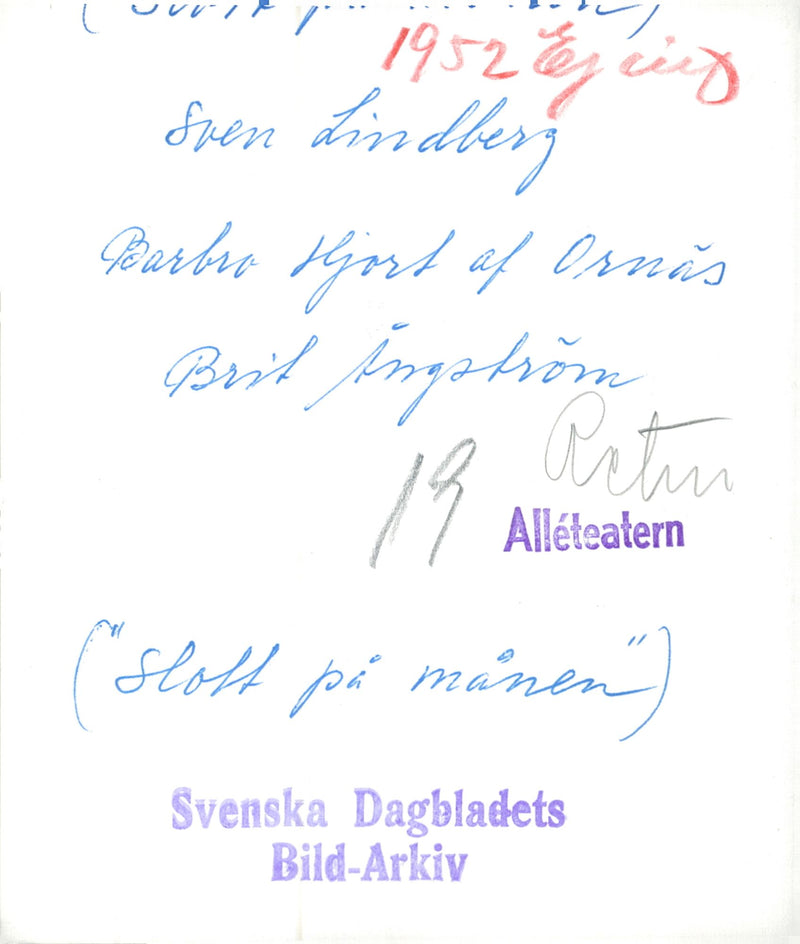 1952
Sven Lindberg
Barbro Hjort af Ornäs
Brit Ångström
Retur
19
Alléteatern
("Slott på månen")
Svenska Dagbladets
Bild-Arkiv